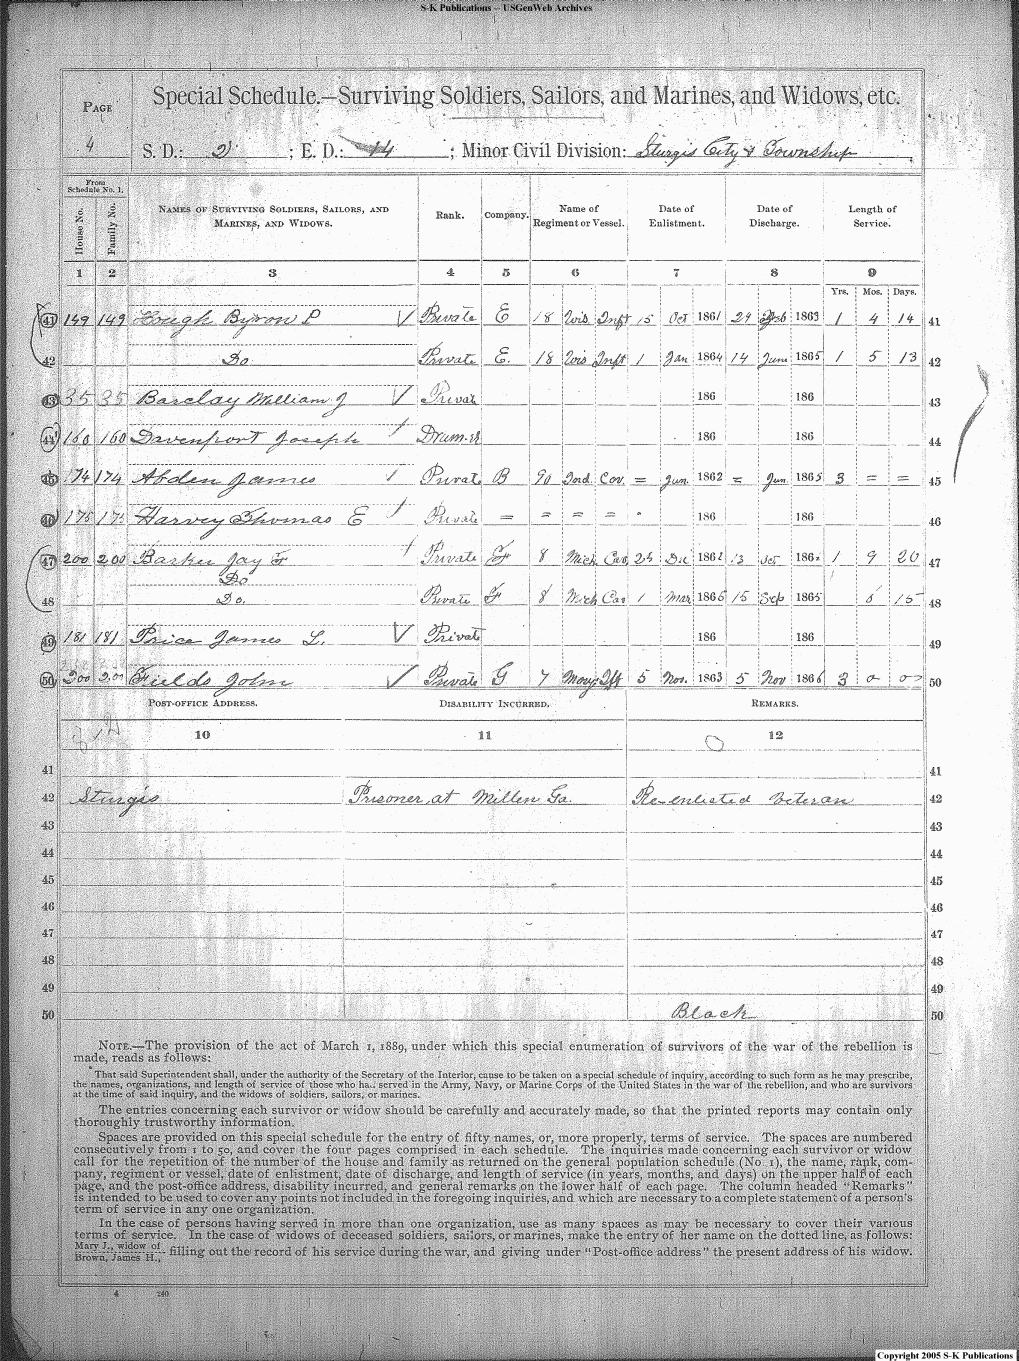 S-K Publications – USGenWeb Archives
PAGE
4
Special Schedule.—Surviving Soldiers, Sailors, and Marines, and Widows, etc.
S. D.: 2 ; E. D.: 14 ; Minor Civil Division: Sturgis City & Township
From Schedule No. 1.
House No. Family No. NAMES OF SURVIVING SOLDIERS, SAILORS, AND MARINES, AND WIDOWS. Rank. Company. Name of Regiment or Vessel. Date of Enlistment. Date of Discharge. Length of Service.
1 2 3 4 5 6 7 8 9
Yrs. Mos. Days.
41 149 149 Hough Byron P Private E 18 Wis Inft 15 Oct 1861 29 Feb 1863 1 4 14 41
42 Do Private E. 18 Wis Inft 1 Jan 1864 14 June 1865 1 5 13 42
43 35 35 Barclay William J Privat 186 186 43
44 160 160 Davenport Joseph Drum.er 186 186 44
45 174 174 Abden James Privat B 90 Ind. Cav. = Jun. 1862 = Jun 1865 3 = = 45
46 175 175 Harvey Thomas E Private = = = = 186 186 46
47 200 200 Barker Jay F Private F 8 Mich Cav 186 13 186 1 9 20 47
Do
48 Do. Private F 8 Mich Cav 1 Mar 1865 15 Sep 1865 6 15 48
49 181 181 Price James L. Private 186 186 49
50 200 Fields John Private G 7 5 Nov. 1863 5 Nov 1866 3 0 0 50
POST-OFFICE ADDRESS. DISABILITY INCURRED. REMARKS.
10 11 12
41 41
42 Sturgis Prisoner at Millen Ga. Re-enlisted Veteran 42
43 43
44 44
45 45
46 46
47 47
48 48
49 49
50 Black 50
NOTE.—The provision of the act of March 1, 1889, under which this special enumeration of survivors of the war of the rebellion is
made, reads as follows:
That said Superintendent shall, under the authority of the Secretary of the Interior, cause to be taken on a special schedule of inquiry, according to such form as he may prescribe,
the names, organizations, and length of service of those who ha.. served in the Army, Navy, or Marine Corps of the United States in the war of the rebellion, and who are survivors
at the time of said inquiry, and the widows of soldiers, sailors, or marines.
The entries concerning each survivor or widow should be carefully and accurately made, so that the printed reports may contain only
thoroughly trustworthy information.
Spaces are provided on this special schedule for the entry of fifty names, or, more properly, terms of service. The spaces are numbered
consecutively from 1 to 50, and cover the four pages comprised in each schedule. The inquiries made concerning each survivor or widow
call for the repetition of the number of the house and family as returned on the general population schedule (No. 1), the name, rank, com-
pany, regiment or vessel, date of enlistment, date of discharge, and length of service (in years, months, and days) on the upper half of each
page, and the post-office address, disability incurred, and general remarks on the lower half of each page. The column headed "Remarks"
is intended to be used to cover any points not included in the foregoing inquiries, and which are necessary to a complete statement of a person's
term of service in any one organization.
In the case of persons having served in more than one organization, use as many spaces as may be necessary to cover their various
terms of service. In the case of widows of deceased soldiers, sailors, or marines, make the entry of her name on the dotted line, as follows:
Mary J., widow of
Brown, James H., filling out the record of his service during the war, and giving under "Post-office address" the present address of his widow.
4 240
Copyright 2005 S-K Publications